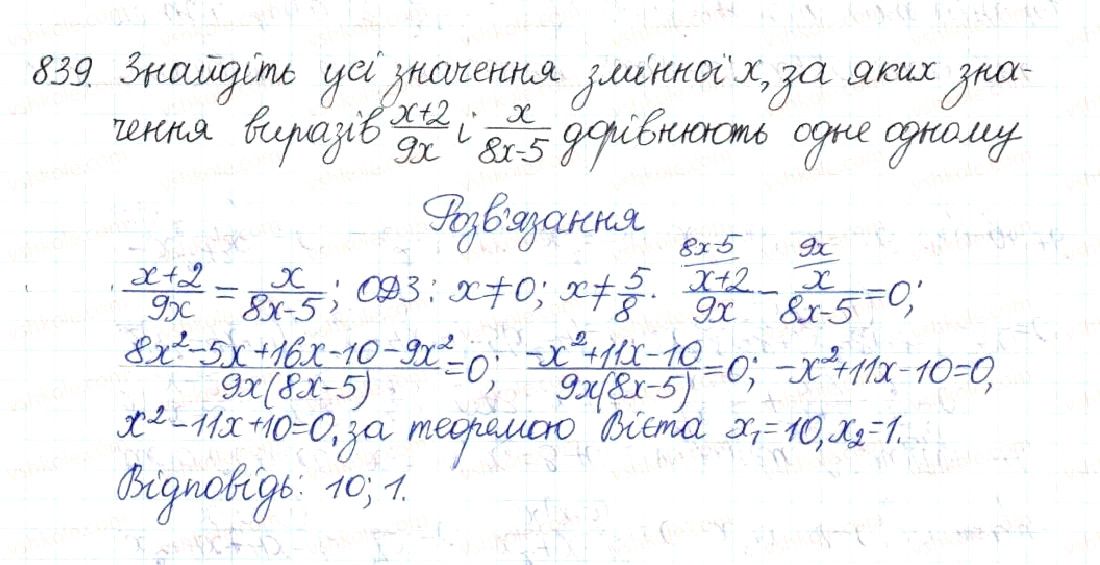 839. Знайдіть усі значення змінної x, за яких зна-
чення виразів (x+2)/(9x) і x/(8x-5) дорівнюють одне одному
Розв'язання
(x+2)/(9x) = x/(8x-5); ОДЗ: x≠0; x≠5/8. (8x-5)/ (x+2)/(9x) - (9x)/ x/(8x-5) =0;
(8x²-5x+16x-10-9x²)/(9x(8x-5))=0; (-x²+11x-10)/(9x(8x-5))=0; -x²+11x-10=0,
x²-11x+10=0, за теоремою Вієта x₁=10, x₂=1.
Відповідь: 10; 1.